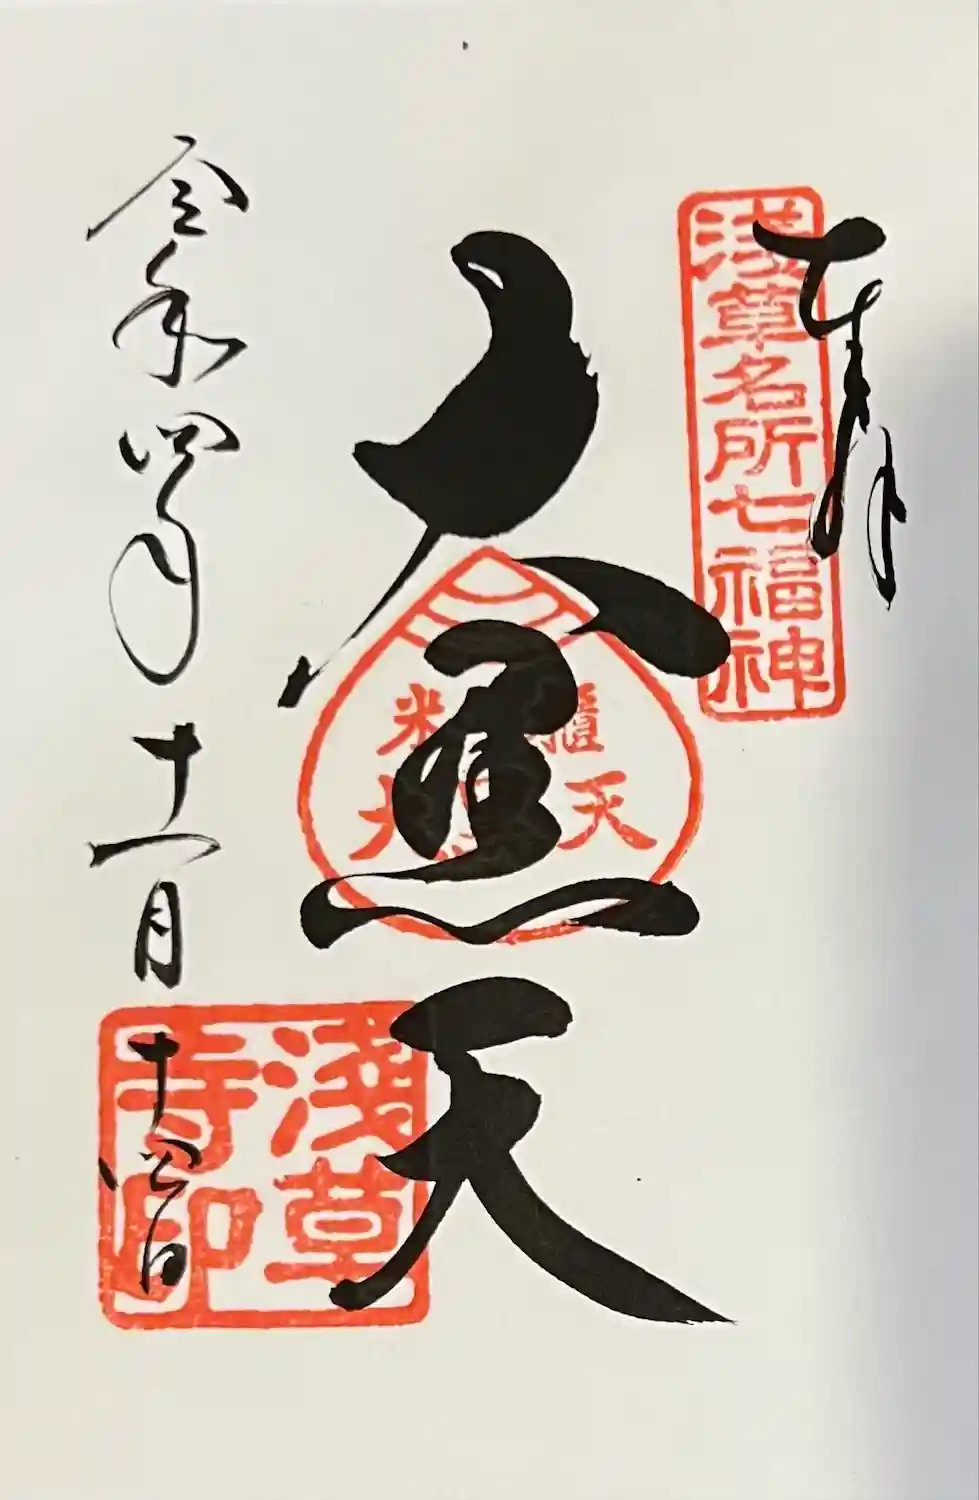 奉拝
浅草名所七福神
大黒天
米櫃
大黒天
浅草
寺印
令和四年十一月十四日